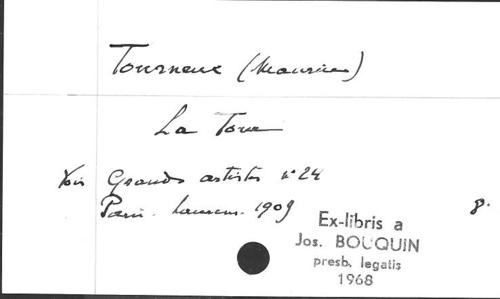 Tourneux (Maurice)
La Tour
Voir Grands artistes n° 24
Paris. Laurens. 1909 8°
Ex-libris a
Jos. BOUQUIN
presb. legatis
1968